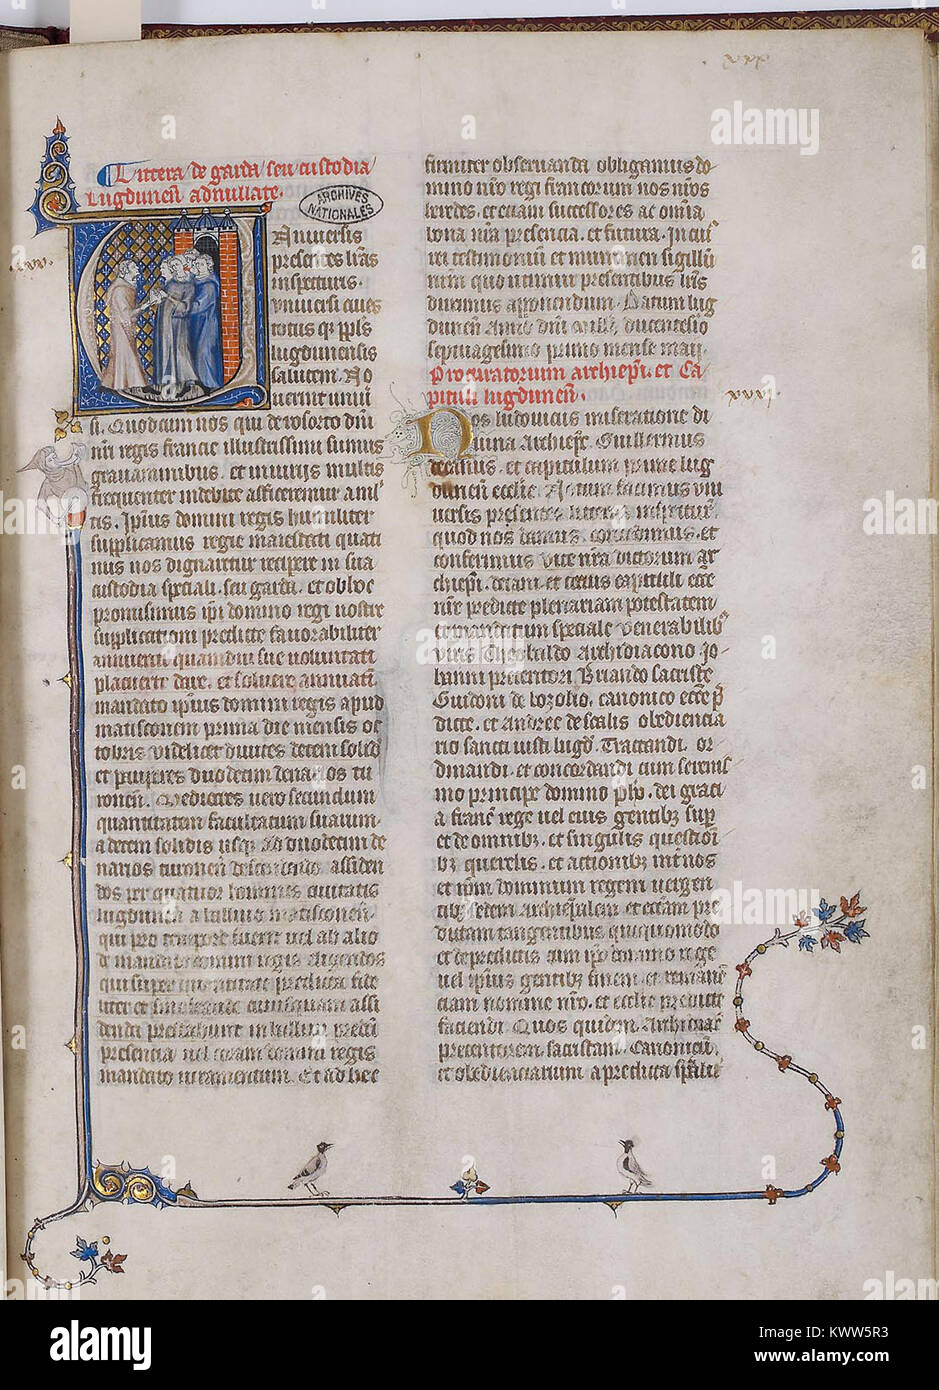 xxxi
Littera de garda seu custodia
Lugdunen̄ adnullate.
ARCHIVES
NATIONALES
xxv.
Vniversis
presentes lr̄as
inspecturis.
vniversi cives
totus qȝ ppl̄s
lugdunensis
salutem. No
verint univ̄
si. Quod cum nos qui de resorto dn̄i
nr̄i regis francie illustrissimi sumus
gravaminibus. et iniuriis multis
frequenter indebite afficeremur a ml̄
tis. Ipius domini regis humiliter
supplicamus regie maiestati quati
nus nos dignaretur recipere in sua
custodia speciali. seu garda. et ob hoc
promisimus ip̄i domino regi nostre
supplicationi predicte favorabiliter
annuenti quamdiu sue voluntati
placuerit dare. et solvere annuati
mandato ip̄ius domini regis apud
matisconem prima die mensis oc
tobris videlicet divites decem solid̄
et pauperes duodecim denarios tu
ronen̄. Mediocres vero secundum
quantitatem facultatum suarum
a decem solidis usqȝ ad duodecim de
narios turonen̄ descendendo assiden
dos per quatuor homines civitatis
lugdunen̄ a ballivo matisconen̄.
qui pro tempore fuerit vel ab alio
de mandato domini regis eligendos
qui super
liter et
dendi prestabunt in ballivi
presencia vel
domini regis
mandato iuramentum. Et ad hec
firmiter observanda obligamus do
mino nr̄o regi francorum nos nr̄os
heredes. et etiam successores ac omīa
bona nr̄a presencia. et futura. In cui
rei testimoniū et munimen sigillū
nr̄m quo utimur presentibus lr̄is
duximus apponendum. Datum lug
dunen̄ Anno dn̄i mill̄o ducentesio
septuagesimo primo mense maij.
Procuratorium archiepī. et Ca
pituli lugdunen̄.
xxvi
Nos ludovicus miseratione di
vina Archiepc̄. Guillermus
decanus. et capitulum prime lug
dunen̄ ecclie. Notum facimus vni
versis presentes litteras inspectur̄.
quod nos damus. concedimus. et
conferimus vice nr̄a
chiepī. decani. et tocius capituli eccl̄e
nr̄e predicte plenariam potestatem
et mandatum speciale venerabilibȝ
viris Theobaldo Archidiacono. Jo
hanni precentori. Briando sacriste
Guidoni de
canonico eccl̄e p̄
dicte. et Andree de
obediencia
rio sancti iusti lugd̄. Tractandi. or
dinandi. et concordandi cum serenis
simo principe domino ph̄o. dei graci
a franc̄ rege vel eius gentibȝ sup̄
et de omnibȝ. et singulis questioni
bȝ querelis. et actionibȝ int̄ nos
et ip̄m dominum regem vergen
tibȝ sedem Archiepalem et eccl̄am pre
dictam tangentibus quoquomodo
et de predictis cum ip̄o domino rege
vel ipius gentibȝ finem. et
ciam nomine nr̄o. et ecclie predicte
faciendi. Quos quidem Archidiac̄.
precentorem. sacristam. Canonicū.
et obedienciarium a predicta
alamy
Image ID: KWW5R3
www.alamy.com